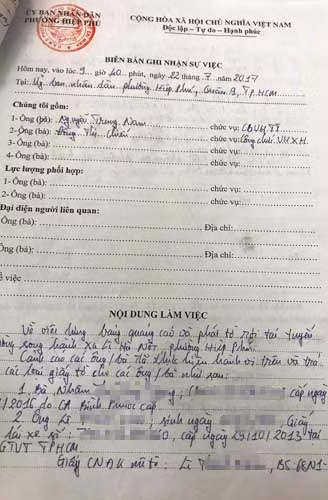 ỦY BAN NHÂN DÂN
PHƯỜNG HIỆP PHÚ
CỘNG HÒA XÃ HỘI CHỦ NGHĨA VIỆT NAM
Độc lập – Tự do – Hạnh phúc
BIÊN BẢN GHI NHẬN SỰ VIỆC
Hôm nay, vào lúc 9 giờ 40 phút, ngày 22 tháng 7 năm 2017
Tại: Ủy ban nhân dân phường Hiệp Phú, Quận 9, TP.HCM
Chúng tôi gồm:
1- Ông (bà): Nguyễn Trung Nam chức vụ: CBVHTT
2- Ông (bà): Thị chức vụ: VHXH
3- Ông (bà): chức vụ:
4- Ông (bà): chức vụ:
Lực lượng phối hợp:
1- Ông (bà): chức vụ:
2- Ông (bà): chức vụ:
Đại diện người liên quan:
Ông (bà): Địa chỉ:
Ông (bà): Địa chỉ:
Về việc
NỘI DUNG LÀM VIỆC
Về việc dùng băng quảng cáo và phát tờ rơi tại tuyến
song hành Xa Lộ Hà Nội, phường Hiệp Phú.
các ông/bà đã thực hiện hành vi trên và
các loại giấy tờ cho các ông/bà như sau:
1. Bà cấp ngày
/2016 do CA Bình Phước cấp.
2. Ông Lê sinh ngày Giấy
lái xe số: 0, cấp ngày 29/10/2013 tại
GTVT TPHCM.
Giấy CNĐK mô tô: Lê BS: 66N1-